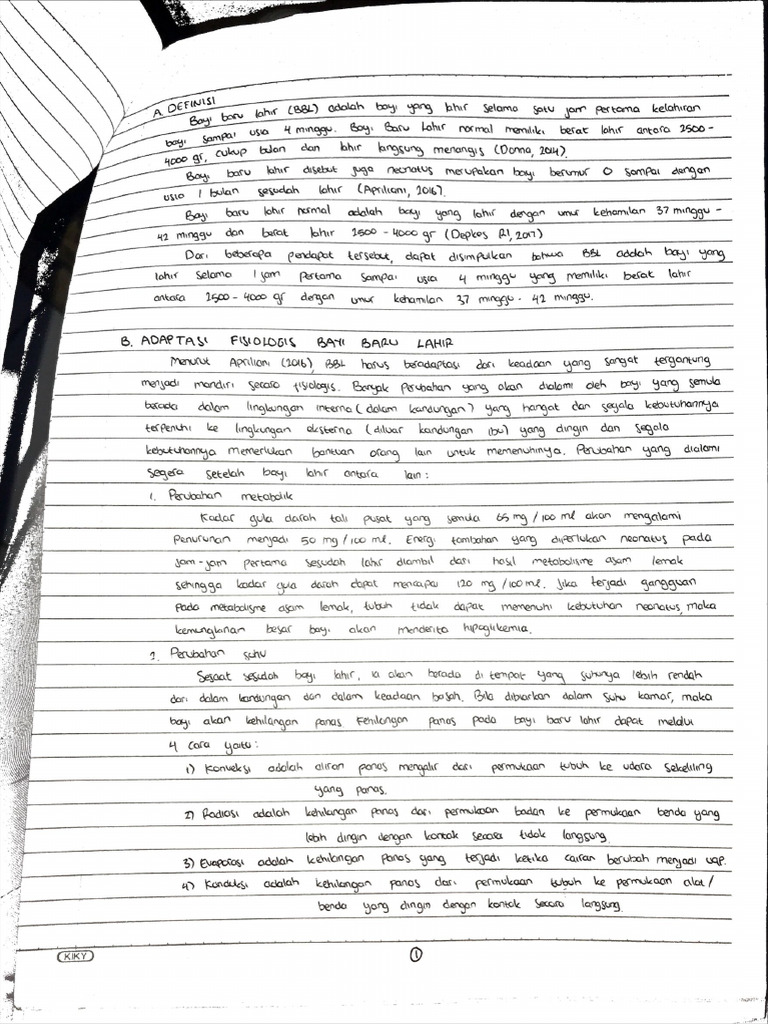 A. DEFINISI
Bayi baru lahir (BBL) adalah bayi yang lahir selama satu jam pertama kelahiran
bayi sampai usia 4 minggu. Bayi Baru Lahir normal memiliki berat lahir antara 2500 -
4000 gr, cukup bulan dan lahir langsung menangis (Donna, 2014).
Bayi baru lahir disebut juga neonatus merupakan bayi berumur 0 sampai dengan
usia 1 bulan sesudah lahir (Apriliani, 2016).
Bayi baru lahir normal adalah bayi yang lahir dengan umur kehamilan 37 minggu -
42 minggu dan berat lahir 2500 - 4000 gr (Depkes RI, 2017)
Dari beberapa pendapat tersebut, dapat disimpulkan bahwa BBL adalah bayi yang
lahir selama 1 jam pertama sampai usia 4 minggu yang memiliki berat lahir
antara 2500 - 4000 gr dengan umur kehamilan 37 minggu - 42 minggu.
B. ADAPTASI FISIOLOGIS BAYI BARU LAHIR
Menurut Apriliani (2016), BBL harus beradaptasi dari keadaan yang sangat tergantung
menjadi mandiri secara fisiologis. Banyak perubahan yang akan dialami oleh bayi yang semula
berada dalam lingkungan interna (dalam kandungan) yang hangat dan segala kebutuhannya
terpenuhi ke lingkungan eksterna (diluar kandungan ibu) yang dingin dan segala
kebutuhannya memerlukan bantuan orang lain untuk memenuhinya. Perubahan yang dialami
segera setelah bayi lahir antara lain :
1. Perubahan metabolik
Kadar gula darah tali pusat yang semula 65 mg / 100 ml akan mengalami
penurunan menjadi 50 mg / 100 ml. Energi tambahan yang diperlukan neonatus pada
jam-jam pertama sesudah lahir diambil dari hasil metabolisme asam lemak
sehingga kadar gula darah dapat mencapai 120 mg / 100 ml. Jika terjadi gangguan
pada metabolisme asam lemak, tubuh tidak dapat memenuhi kebutuhan neonatus, maka
kemungkinan besar bayi akan menderita hipoglikemia.
2. Perubahan suhu
Sesaat sesudah bayi lahir, ia akan berada di tempat yang suhunya lebih rendah
dari dalam kandungan dan dalam keadaan basah. Bila dibiarkan dalam suhu kamar, maka
bayi akan kehilangan panas. Kehilangan panas pada bayi baru lahir dapat melalui
4 cara yaitu :
1) Konveksi adalah aliran panas mengalir dari permukaan tubuh ke udara sekeliling
yang panas.
2) Radiasi adalah kehilangan panas dari permukaan badan ke permukaan benda yang
lebih dingin dengan kontak secara tidak langsung.
3) Evaporasi adalah kehilangan panas yang terjadi ketika cairan berubah menjadi uap.
4) Konduksi adalah kehilangan panas dari permukaan tubuh ke permukaan alat /
benda yang dingin dengan kontak secara langsung.
KIKY
1